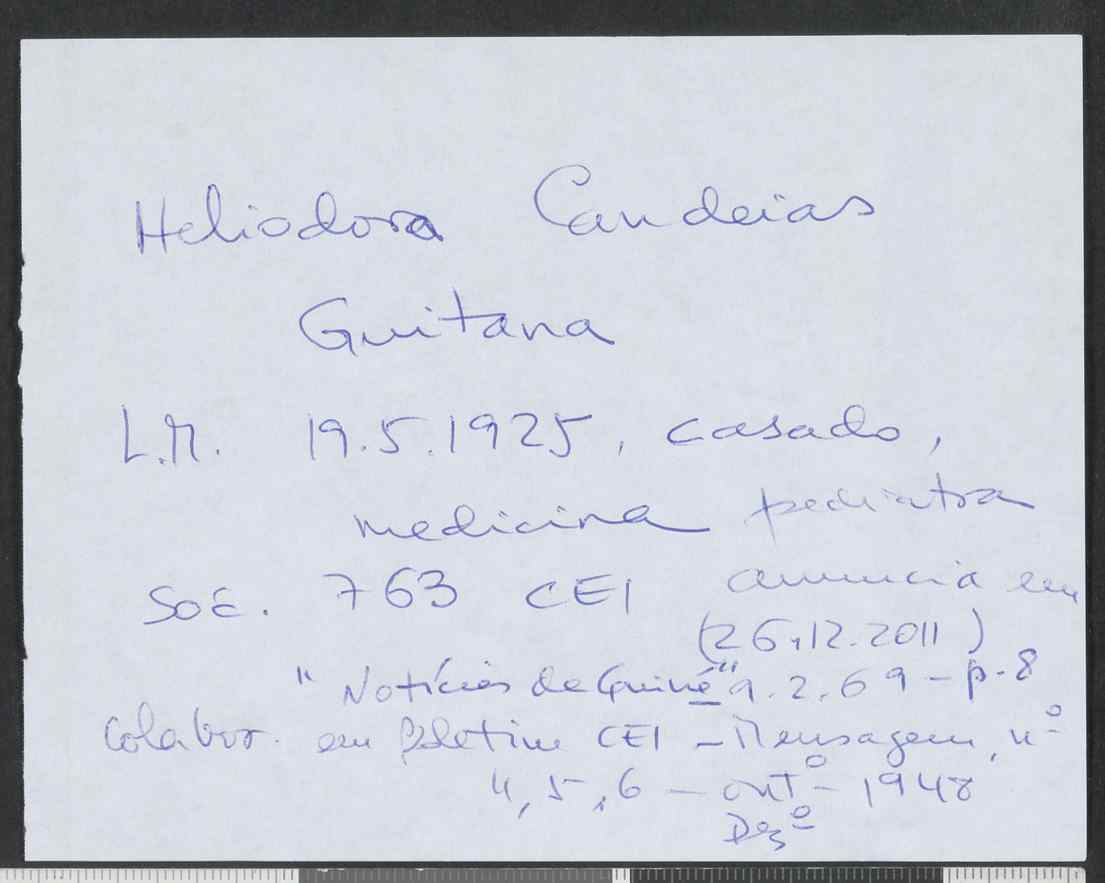 Heliodora Candeias
Guitana
L.M. 19.5.1925, casado,
medicina pediatra
Soc. 763 CEI anuncia em
(26.12.2011)
"Notícias de Guiné" 9.2.69 - p. 8
Colabor. em Boletim CEI - Mensagem, nº
4, 5, 6 - outº - 1948
Dezº